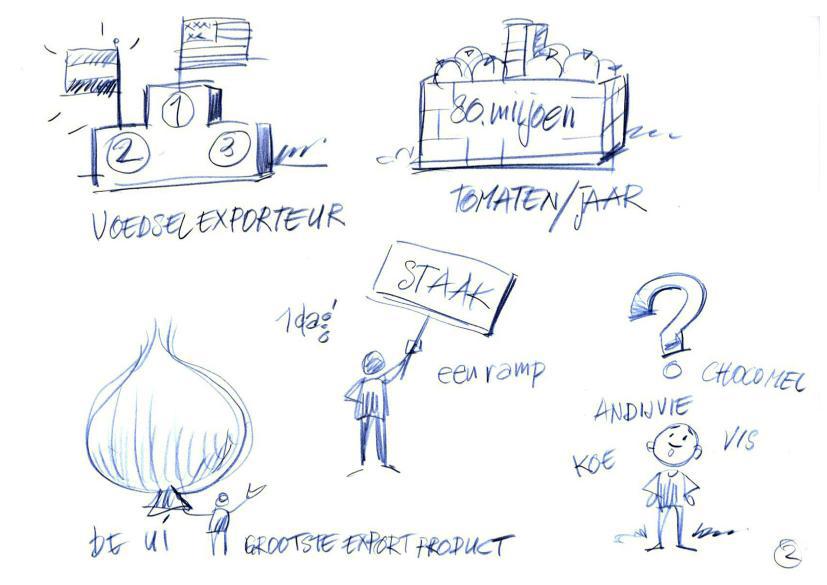 1
2
3
VOEDSELEXPORTEUR
80.miljoen
TOMATEN/JAAR
STAAK
1 dag
een ramp
CHOCOMEL
ANDIJVIE
KOE
VIS
DE UI
GROOTSTE EXPORT PRODUCT
2